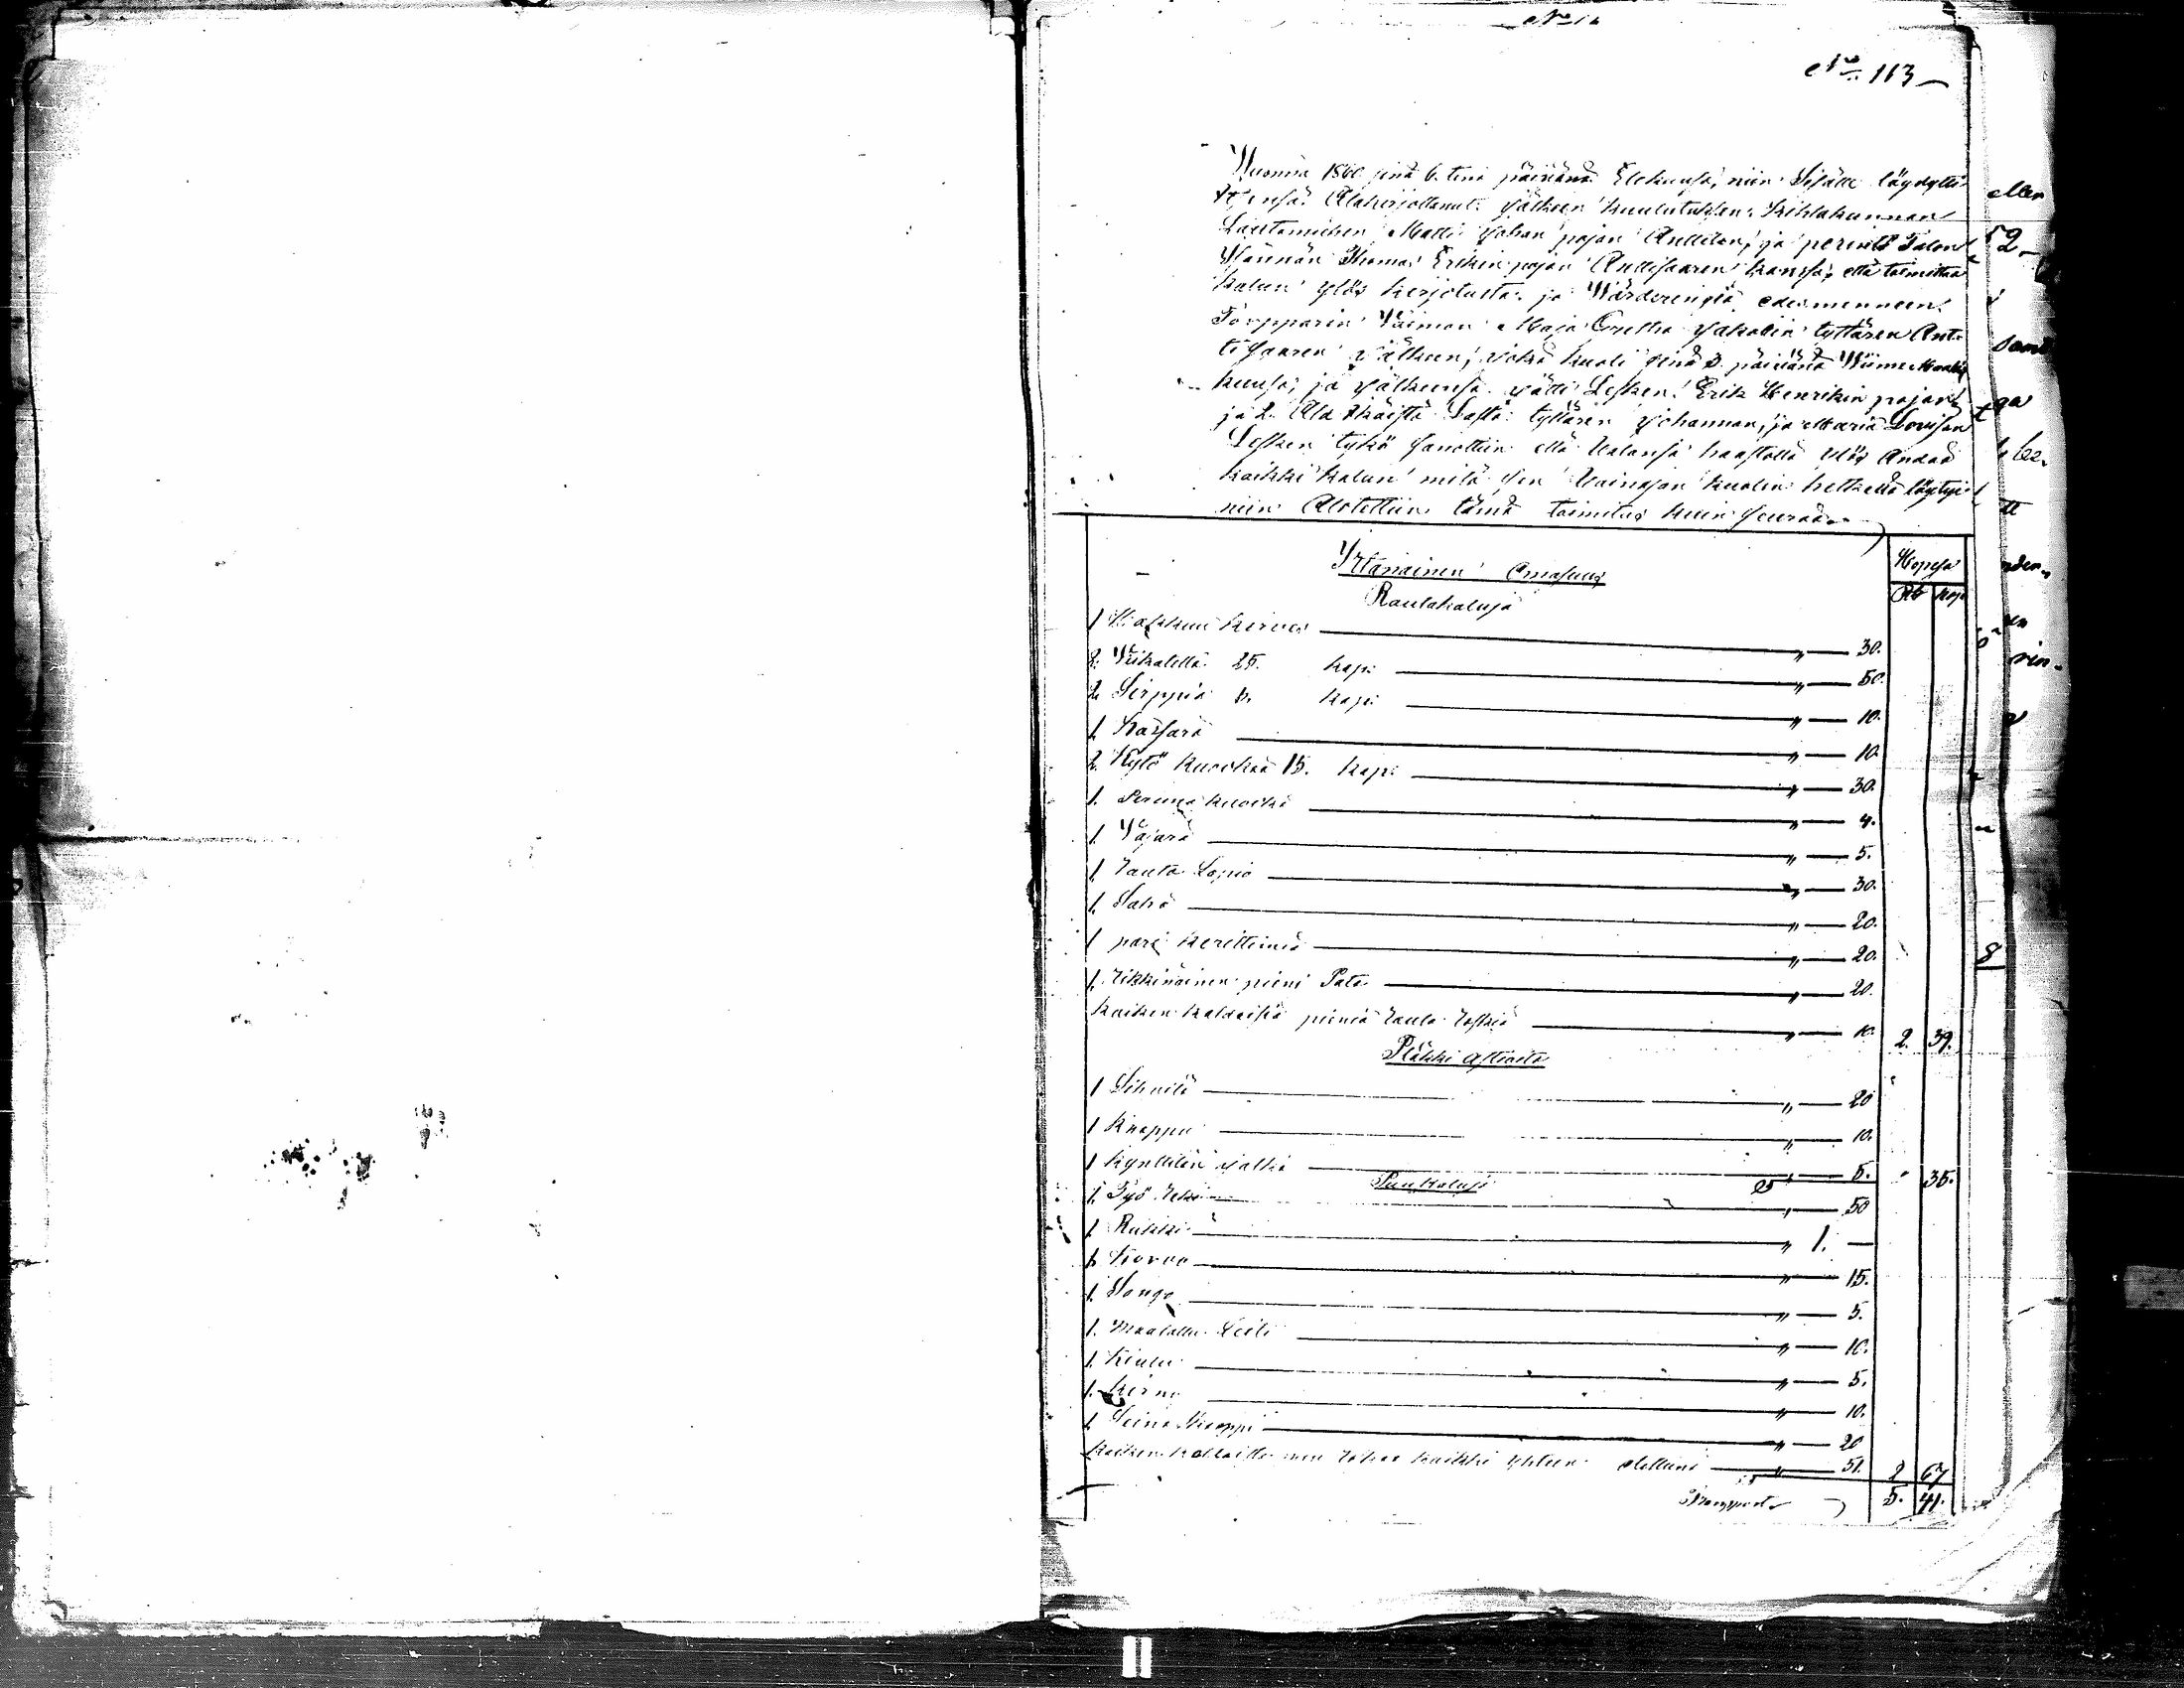 No 113
Wuonna 1860 sinä 6. tenä päivänä Elokuusa, niin Sisälle löydytti
Alakirjottanut jälkeen kuulutuksen Kihlakunnan
Lautamiehen Matti Johan pojan Anttilan, ja perintö Talon
Isännän Thomas Erikin pojan Anttisaaren kanssa, että toimittaa
kalun ylös kirjotusta ja Wärderingiä edesmenneen
Torpparin Waimon Maja Gretha Jakobin tyttären Ant-
tisaaren jälkeen, joka kuoli sinä 3. päivänä
kuusa, ja jälkeensä jätti Lesken Erik Henrikin pojan
ja 2. Ala Ikäistä Lasta tyttären Johannan, ja Maria Lovisan
Lesken tykö sanottiin että Walansa haastolla ylös Andaa
kaikki kalun mitä sen Wainajan kuolin hetkellä löytyi
niin Alotettiin tämä toimitus kuin seuraa
Irtanainen Omasuus
Hopesa
Rautakaluja
Rb kop
1 Hakkuu kirves " 30.
2. Wiikatetta 25. kop: " 50.
2. Sirppiä 5. kop: " 10.
1. Kassara " 10.
2. Kytö kuokkaa 15. kop: " 30.
1. Peruna kuokka " 4.
1. Wasara " 5.
1. Rauta Lapio " 30.
1. Saha " 20.
1 pari keritTimiä " 20.
1. Rikkinäinen pieni Pata " 20.
kaiken kaldaisia pieniä Rauta Roskia " 10. 2. 39.
Pläkki astioita
1 Sihvilä " 20
1 Knappu " 10.
1 kynttilän jalka " 5. " 35.
Puu kaluja
1. Työ Reki " 50
1. Rukki " 1. —
1. Korvo " 15.
1. Sango " 5.
1. Maalattu Leili " 10.
1. Kiulu " 5.
1. Kirnu " 10.
1. Seinä Kaappi " 20
kaiken kaltaista puu Rohua kaikki yhteen otettuna " 51. 2 67
Transport 5. 41.